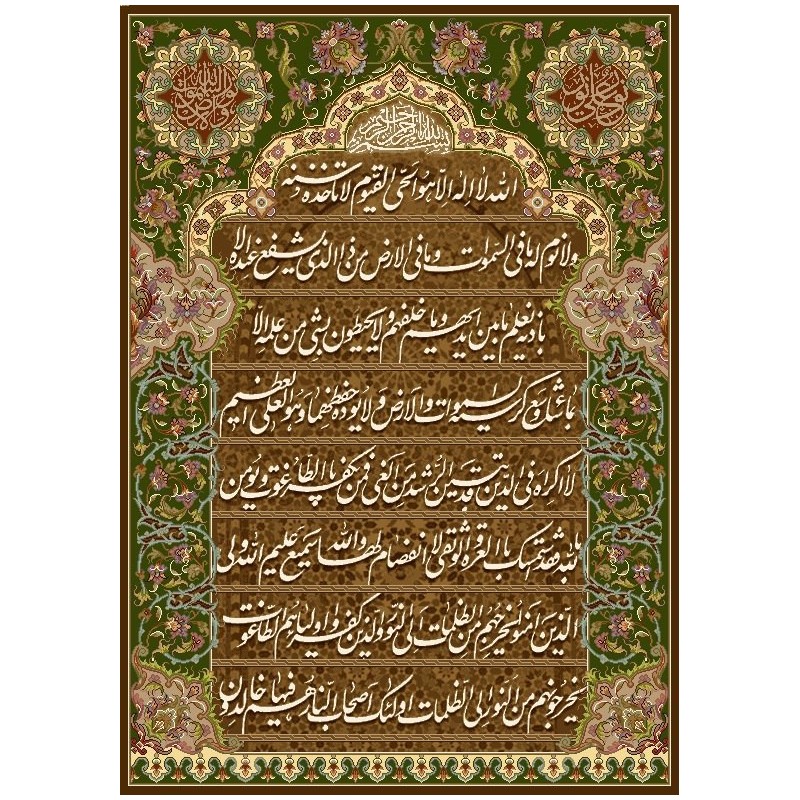 بسم الله الرحمن الرحیم
الله لا اله الا هو الحی القیوم لا تاخذه سنه
ولا نوم له ما فی السموات وما فی الارض من ذا الذی یشفع عنده الا
باذنه یعلم ما بین ایدیهم وما خلفهم ولا یحیطون بشی من علمه الا
بما شاء وسع کرسیه السموات والارض ولا یوده حفظهما وهو العلی العظیم
لا اکراه فی الدین قد تبین الرشد من الغی فمن یکفر باالطاغوت ویومن
بالله فقد استمسک باالعروة الوثقی لا انفصام لها والله سمیع علیم الله ولی
الذین امنوا یخرجهم من الظلمات الی النور والذین کفروا اولیاهم الطاغوت
یخرجونهم من النور الی الظلمات اولئک اصحاب النار هم فیها خالدون